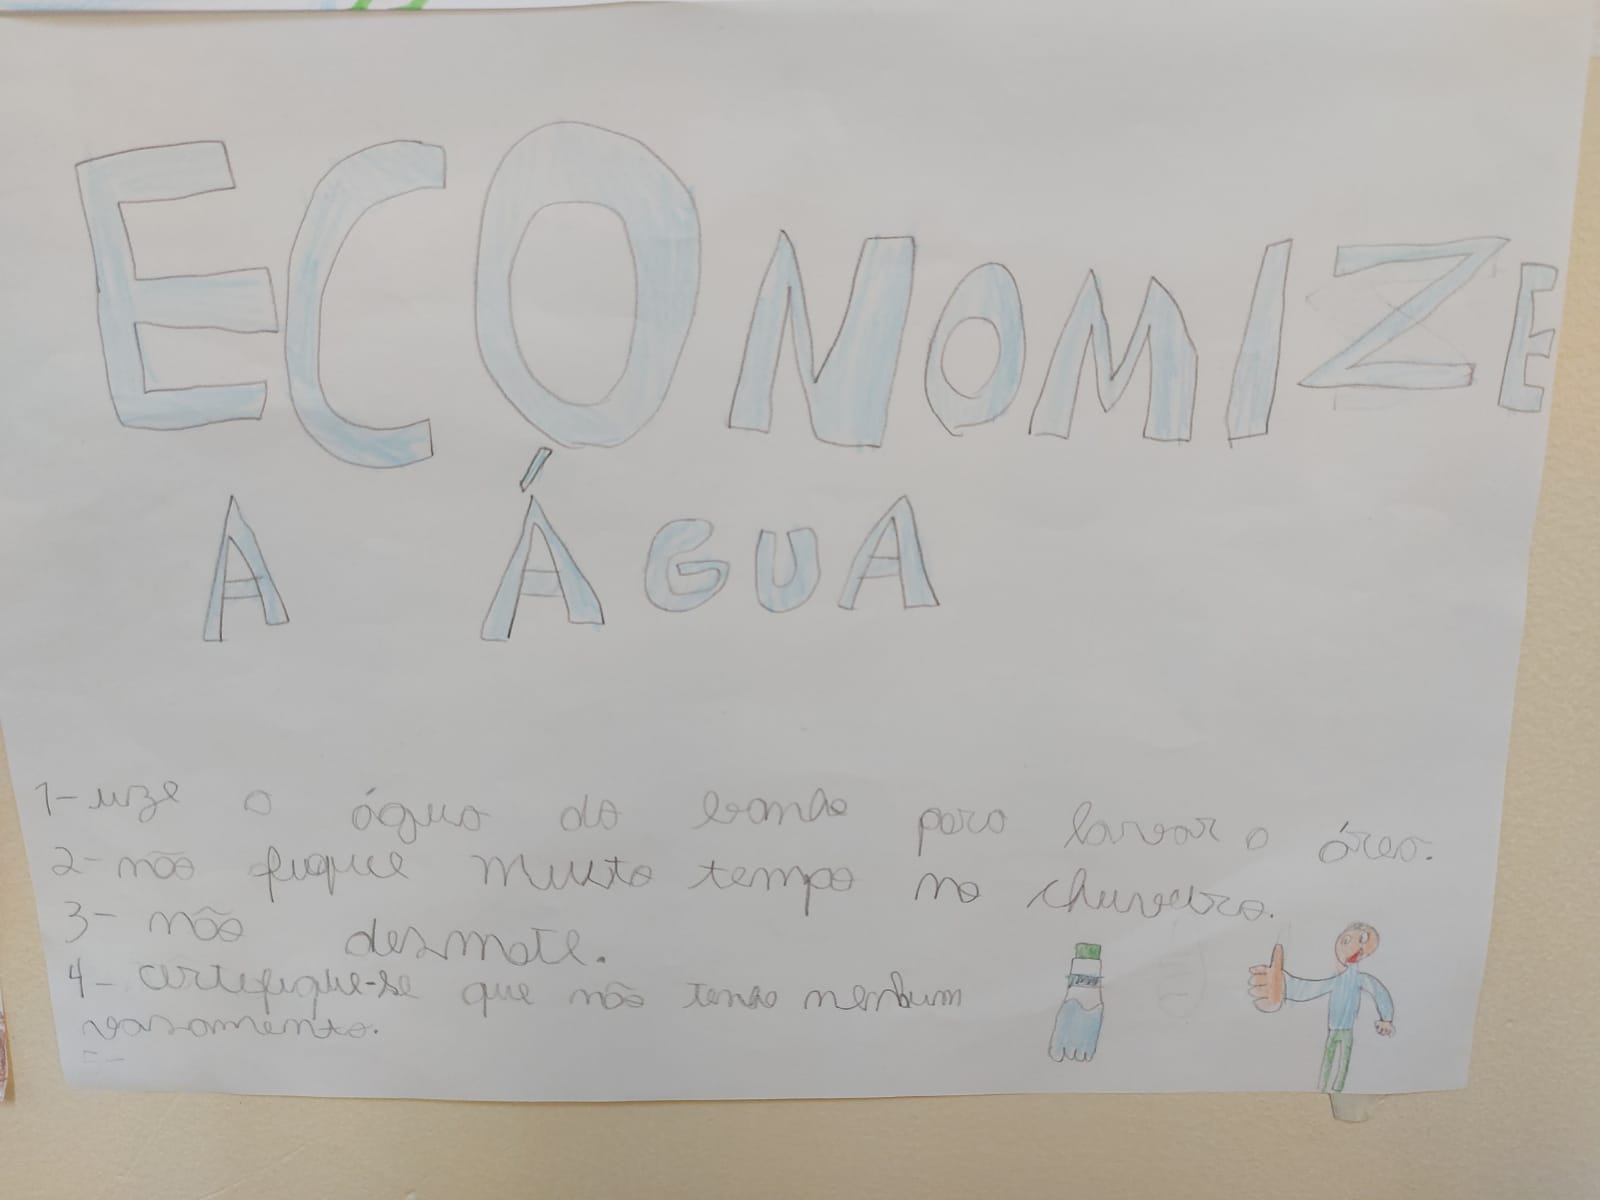 ECONOMIZE
A ÁGUA
1- uze a água do banho para lavar a área.
2- não fuque muito tempo no chuveiro.
3- não desmate.
4- certefique-se que não tenha nenhum
vazamento.